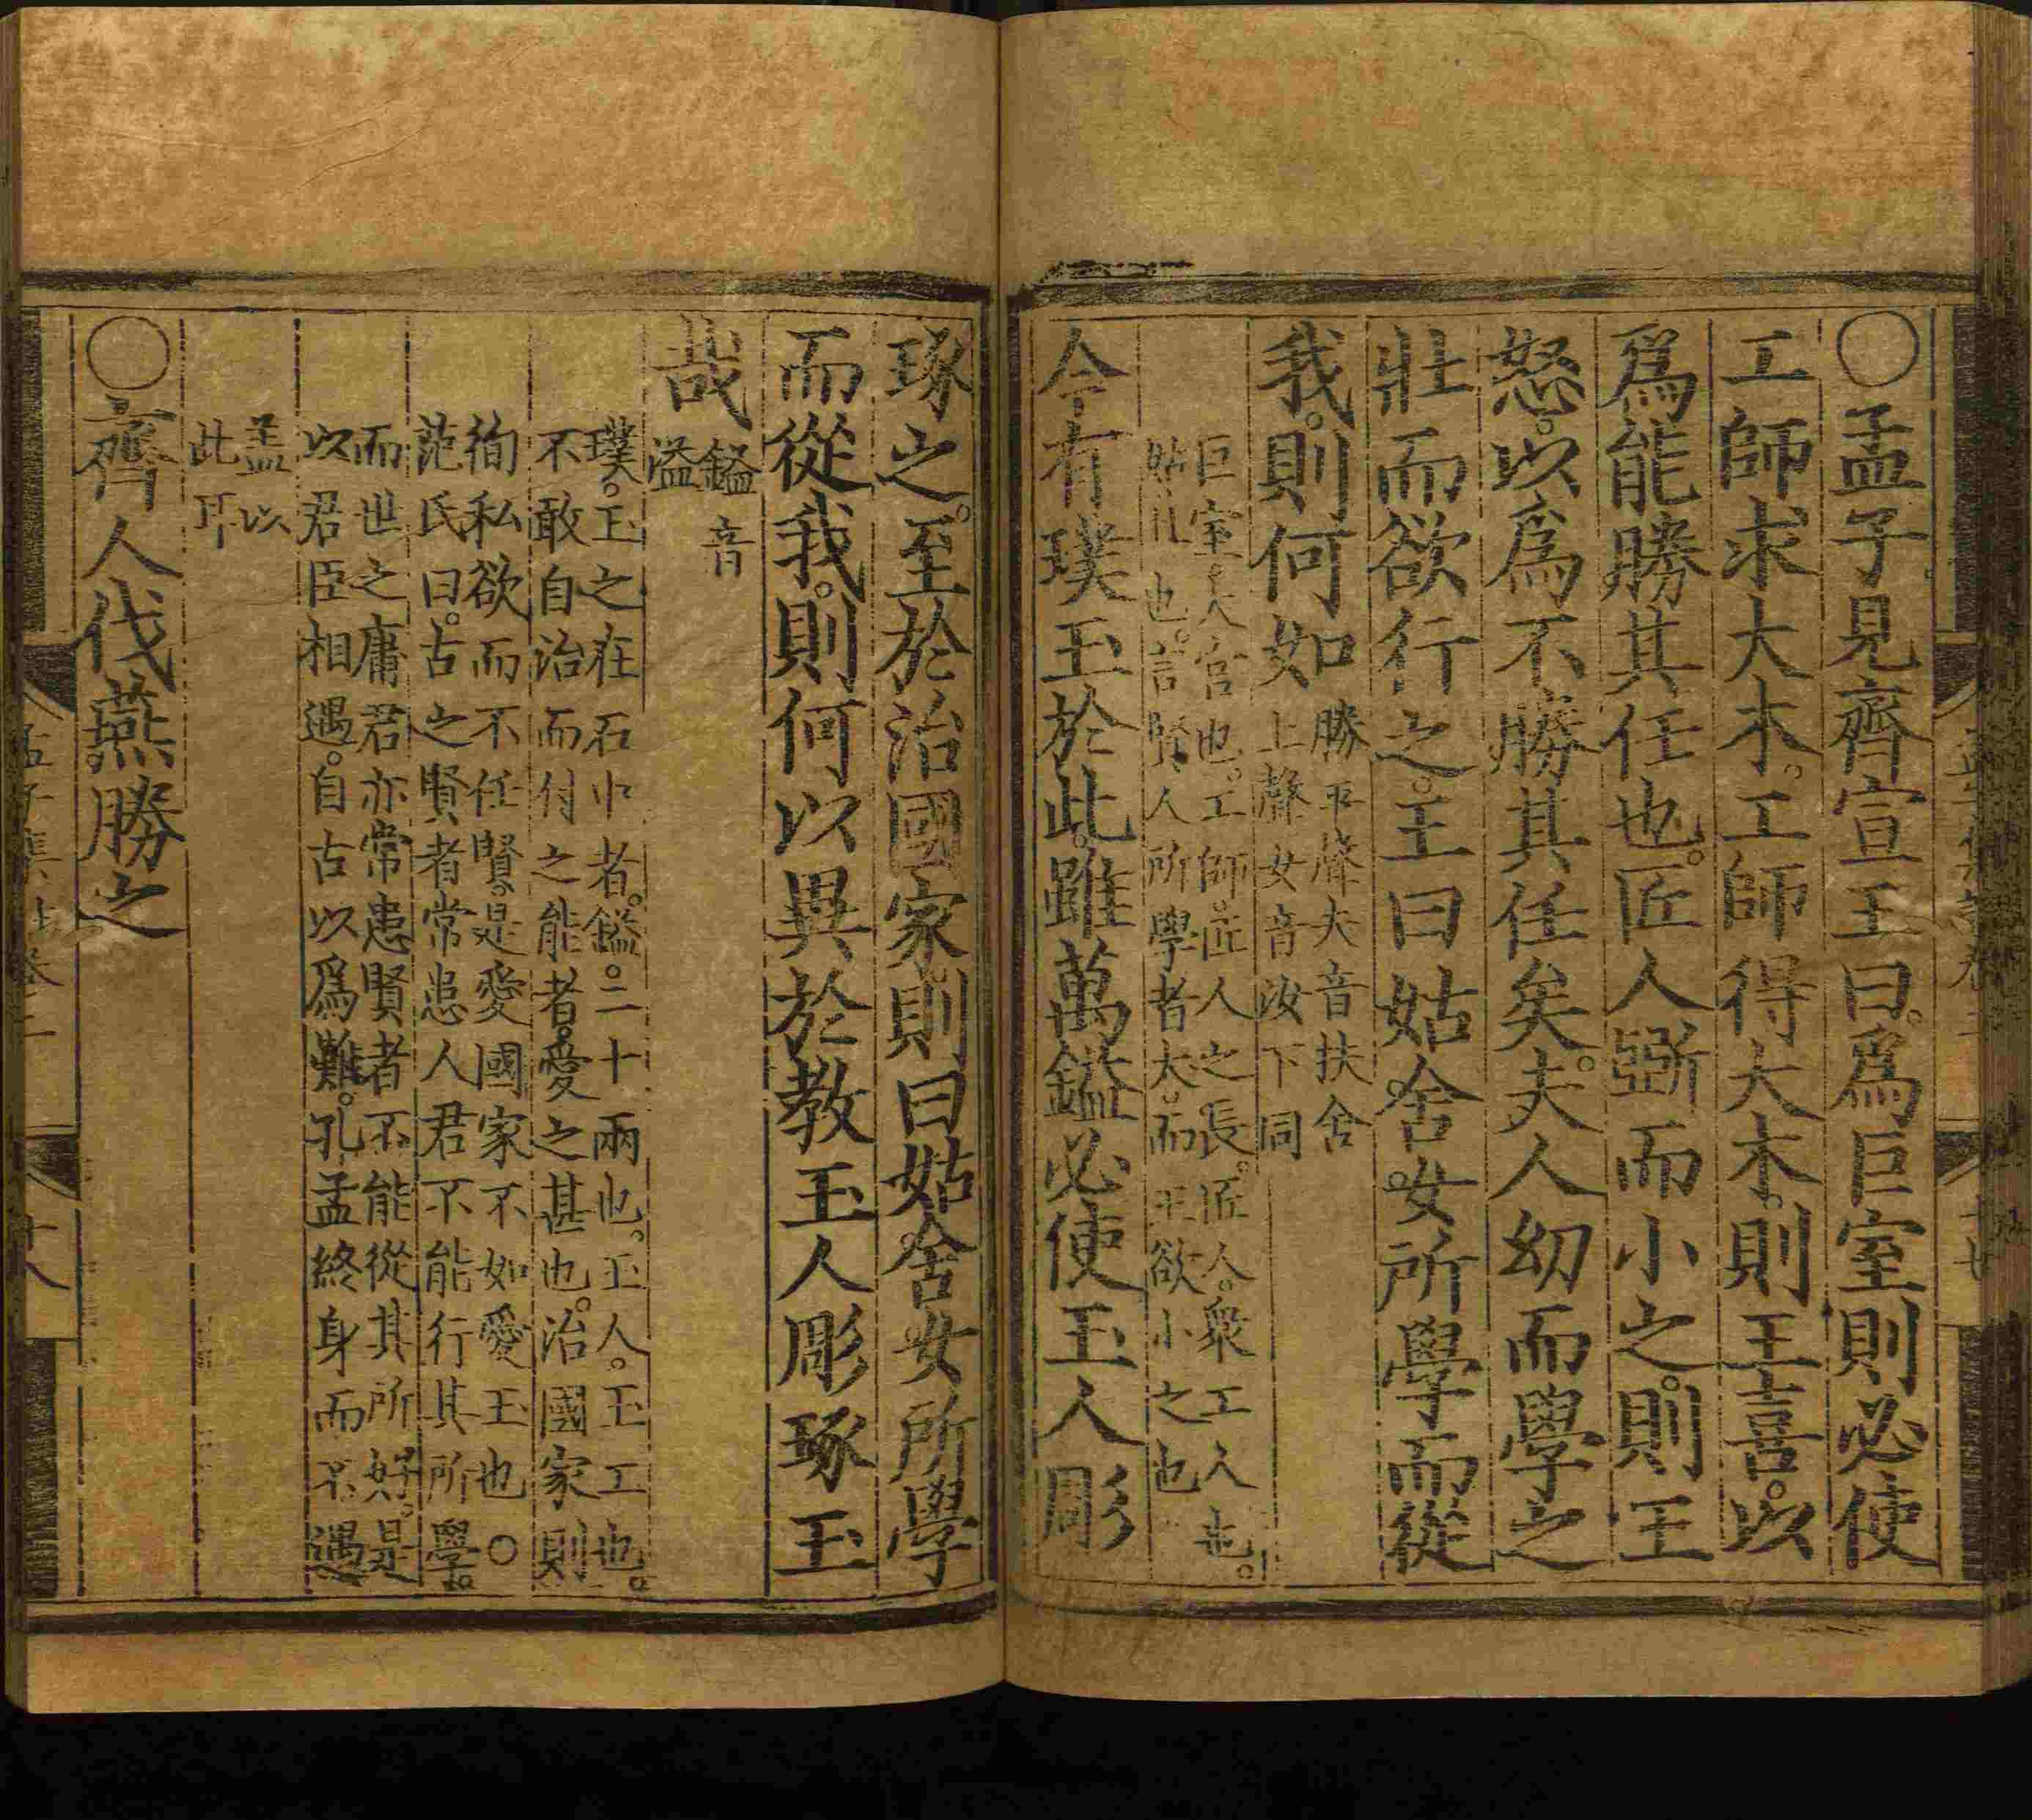 ○孟子見齊宣王曰。爲巨室則必使
工師求大木。工師得大木。則王喜。以
爲能勝其任也。匠人斲而小之。則王
怒。以爲不勝其任矣。夫人幼而學之
壯而欲行之。王曰姑舍女所學而從
我。則何如
勝平聲夫音扶舍
上聲女音汝下同
巨室。大宫也。工師。匠人之長。匠人。衆工人也。
姑且也。言賢人所學者大。而王欲小之也
今有璞玉於此。雖萬鎰必使玉人彫
琢之。至於治國家則曰姑舍女所學
而從我。則何以異於教玉人彫琢玉
哉
鎰音
溢
璞。玉之在石中者。鎰。二十兩也。玉人。玉工也。
不敢自治而付之能者。愛之甚也。治國家則
徇私欲而不任賢。是愛國家不如愛玉也○
范氏曰。古之賢者常患人君不能行其所學。
而世之庸君亦常患賢者不能從其所好。是
以君臣相遇。自古以爲難。孔孟終身而不遇
蓋以
此耳
○齊人伐燕勝之
十八